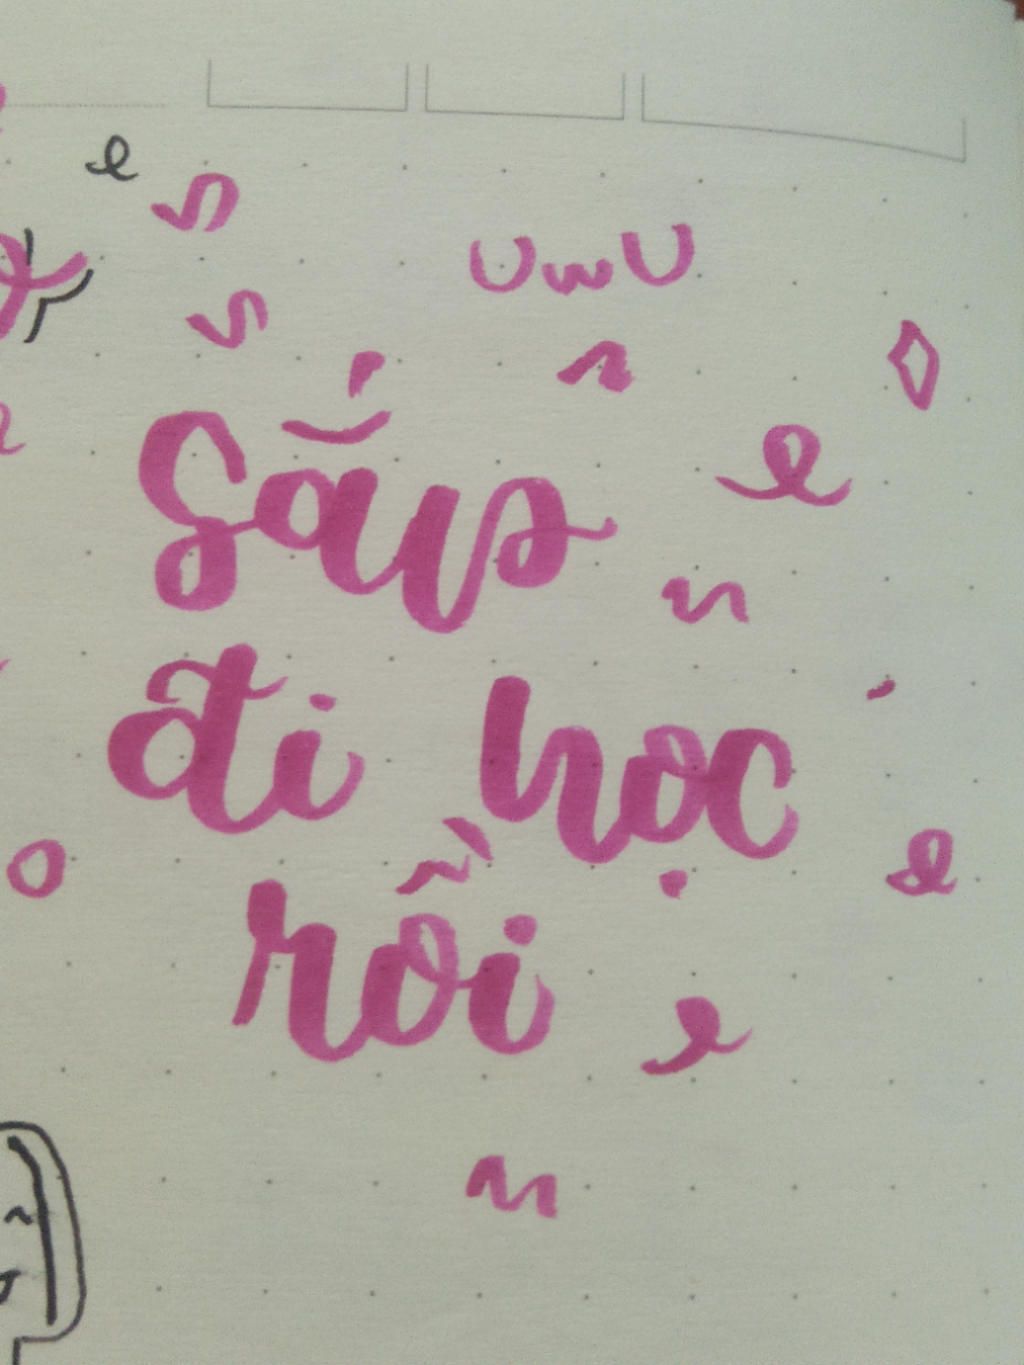 e
UwU
Sắp
e
đi học
e
rồi
e